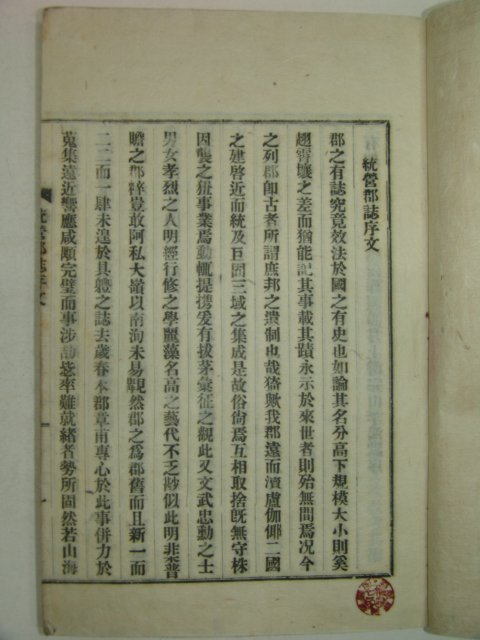 統營郡誌序文
郡之有誌究竟效法於國之有史也如論其名分高下規模大小則奚
趐霄壤之差而猶能記其事載其蹟永示於來世者則殆無間焉况今
之列郡卽古者所謂庶邦之遺制也哉猗歟我郡遠而瀆盧伽倻二國
之建啓近而統及巨固三域之集成是故俗尙焉互相取捨旣無守株
因襲之狃事業焉動輒提携爰有拔茅彙征之觀此又文武忠勳之士
男女孝烈之人明經行修之學麗藻名高之藝代不乏尠似此明非普
瞻之郡粹豈敢阿私大嶺以南洵未易覩然郡之爲郡舊而且新一而
二二而一肆未遑於具軆之誌去歲春本郡章甫專心於此事倂力於
蒐集遠近響應咸順完璧而事涉訪率難就緖者勢所固然若山海
統營郡誌序文